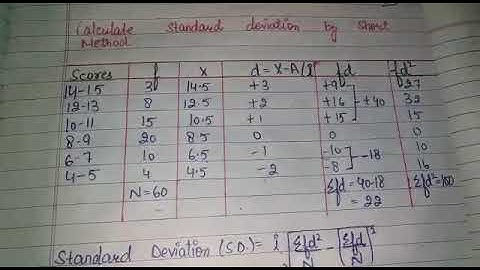 Calculate Standard deviation by Short
Method
Scores f x d = X-A/i fd fd²
14-15 3 14.5 +3 +9 27
12-13 8 12.5 +2 +16 +40 32
10-11 15 10.5 +1 +15 15
8-9 20 8.5 0 0 0
6-7 10 6.5 -1 -10 -18 10
4-5 4 4.5 -2 -8 16
N=60 Σfd = 40-18 Σfd²=100
= 22
Standard Deviation (S.D.) = i √ Σfd² - [Σfd]²
N N